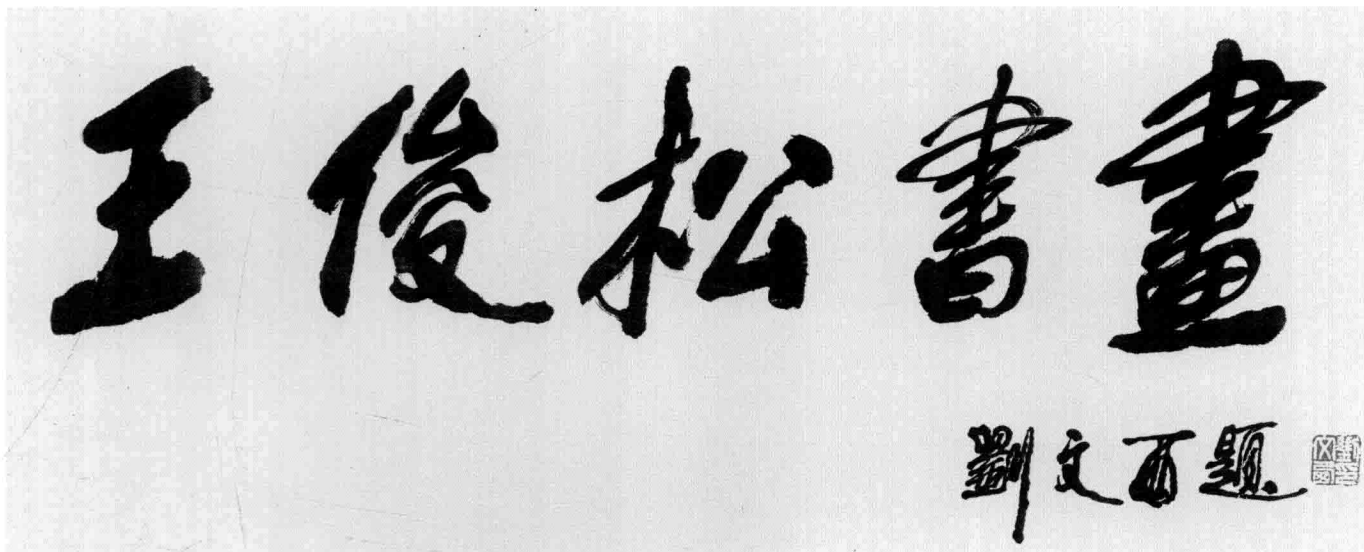 王俊松書畫
劉文西题